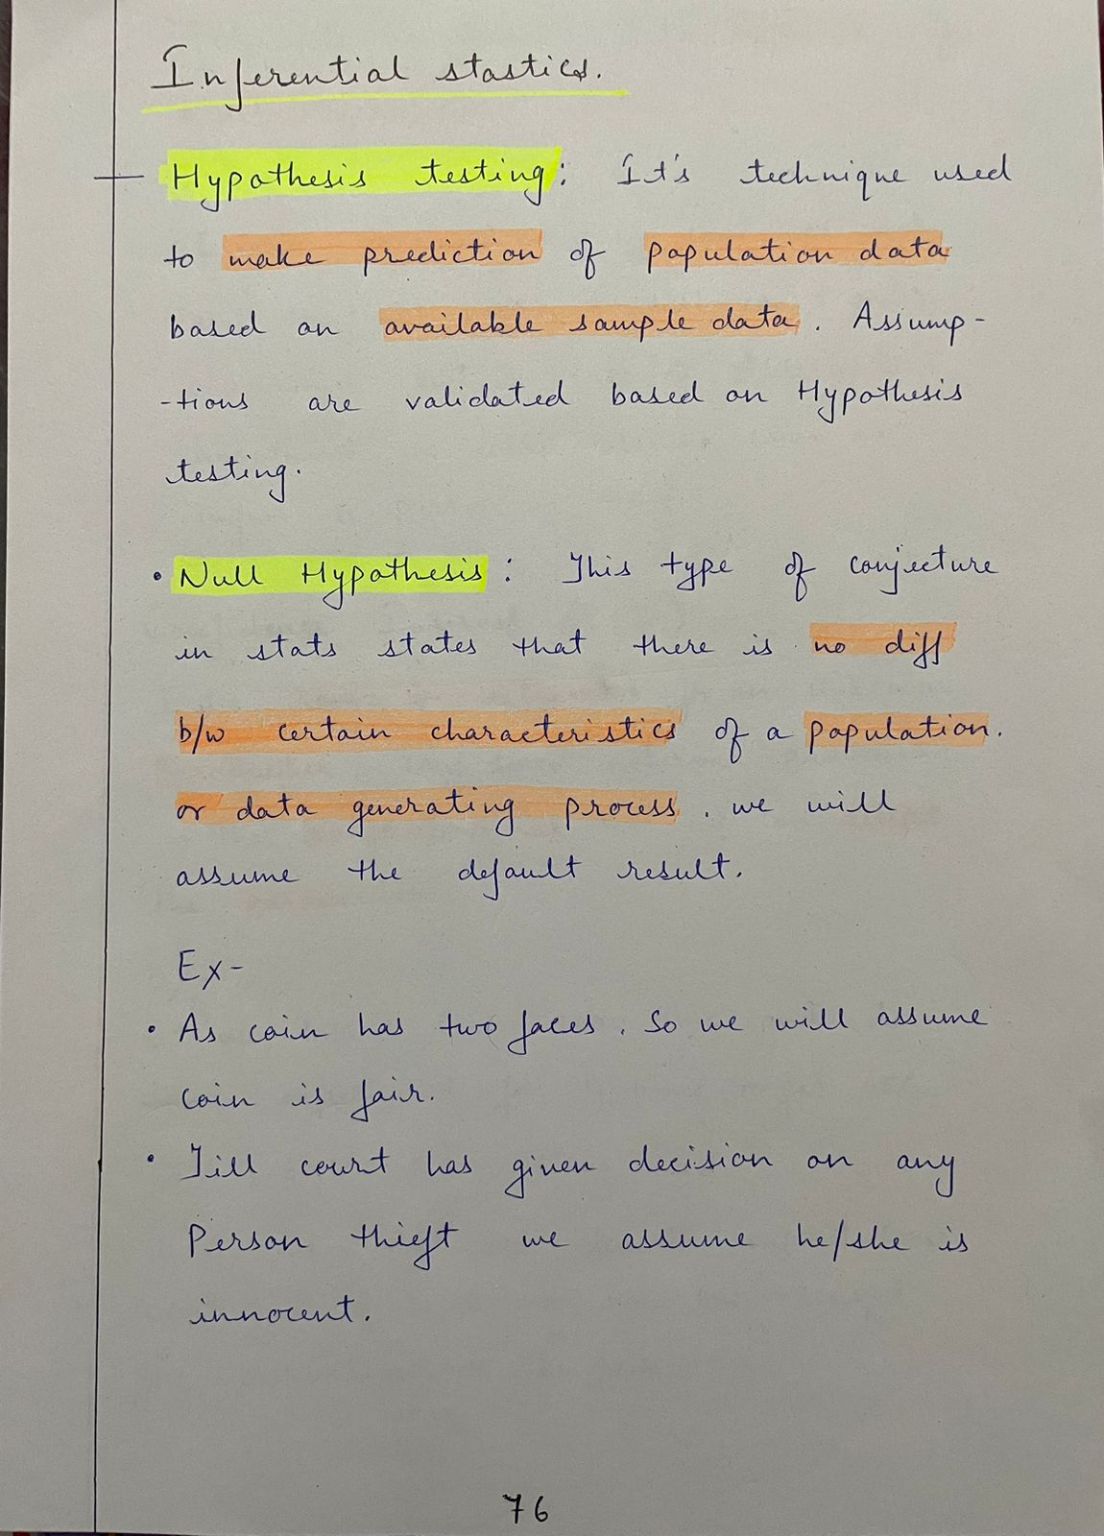 Inferential stastics.
Hypothesis testing: It's technique used
to make prediction of population data
based on available sample data. Assump-
-tions are validated based on Hypothesis
testing.
• Null Hypothesis: This type of conjecture
in stats states that there is no diff
b/w certain characteristics of a population.
or data generating process. we will
assume the default result.
Ex-
• As coin has two faces. So we will assume
coin is fair.
• Till court has given decision on any
Person thieft we assume he/she is
innocent.
76